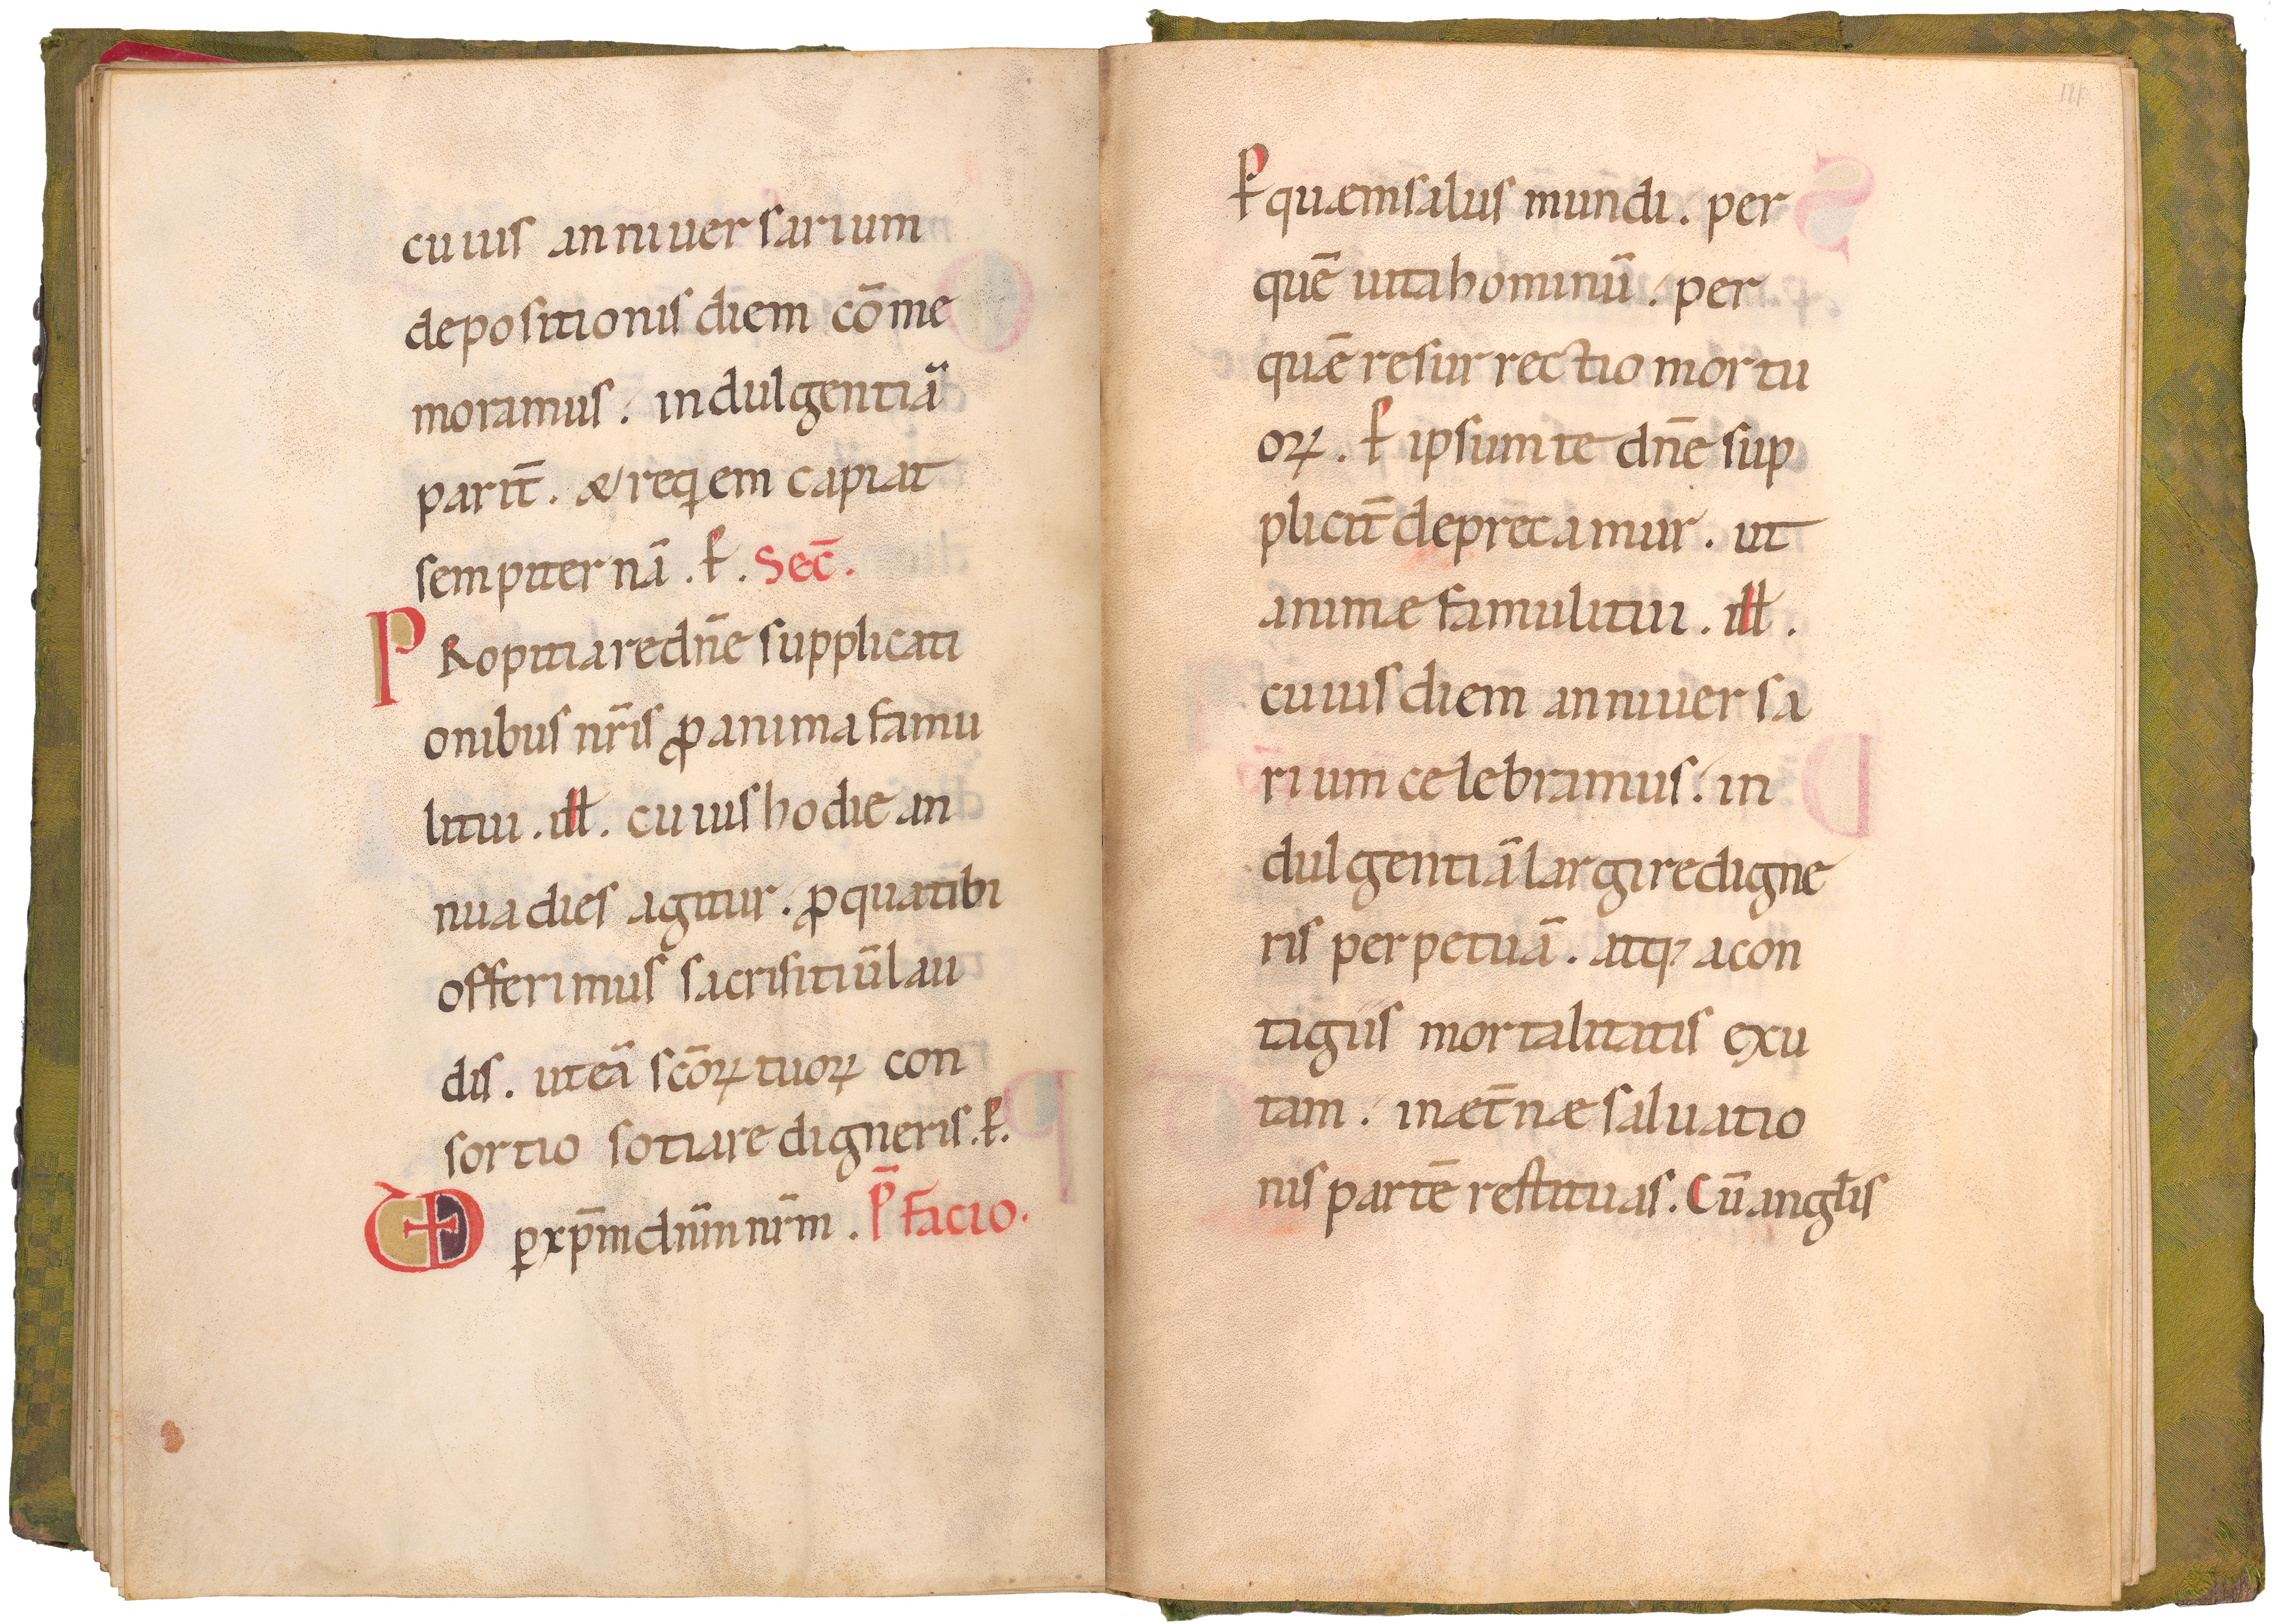 cuius anniuersarium
depositionis diem cōme
moramus. indulgentiā
parit̄. & reqem capiat
sempiternā. P. Sec̄.
PRopitiare dn̄e supplicati
onibus nr̄is ꝓ anima famu
li tui. ill. cuius hodie an
nua dies agitur. ꝓ qua tibi
offerimus sacrifitiū lau
dis. ut eā scōꝝ tuoꝝ con
sortio sotiare digneris. P.
ꝑ xp̄m dn̄m nr̄m. P̄facio.
P quæm salus mundi. per
quē uita hominū. per
quǣ resurrectio mortu
oꝝ. P ipsum te dn̄e sup
plicit̄ deprecamur. ut
animæ famuli tui. ill.
cuius diem anniuersa
rium celebramus. in
dulgentiā largire digne
ris perpetuā. atq; a con
tagiis mortalitatis exu
tam. in æt̄næ saluatio
nis partē restituas. Cū anglis